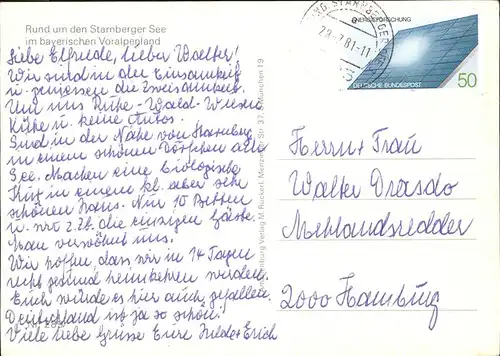 Rund um den Starnberger See
im bayerischen Voralpenland
Liebe Elfriede, lieber Walter!
Wir sind in der Einsamkeit
u. geniessen die Zweisamkeit.
Um uns Ruhe - Wald - Wiesen
Kühe u. keine Autos.
Sind in der Nähe von Starnberg
in einem schönen Dörfchen am
See. Machen eine biologische
Kur in einem kl. aber sehr
schönen Haus. Nur 10 Betten
u. wir z. Zt. die einzigen Gäste.
Man verwöhnt uns.
Wir hoffen, dass wir in 14 Tagen
recht gesund heimkehren werden.
Erich würde es hier auch gefallen.
Deutschland ist ja so schön!
Viele liebe Grüsse Eure Hilde + Erich
Verlag M. Ruckert
Str. 37, 8 München 19
STARNBERGER
28.-7.81-11
ENERGIEFORSCHUNG
DEUTSCHE BUNDESPOST
50
Herrn + Frau
Walter Drasdo
Mehlandsredder
2000 Hamburg